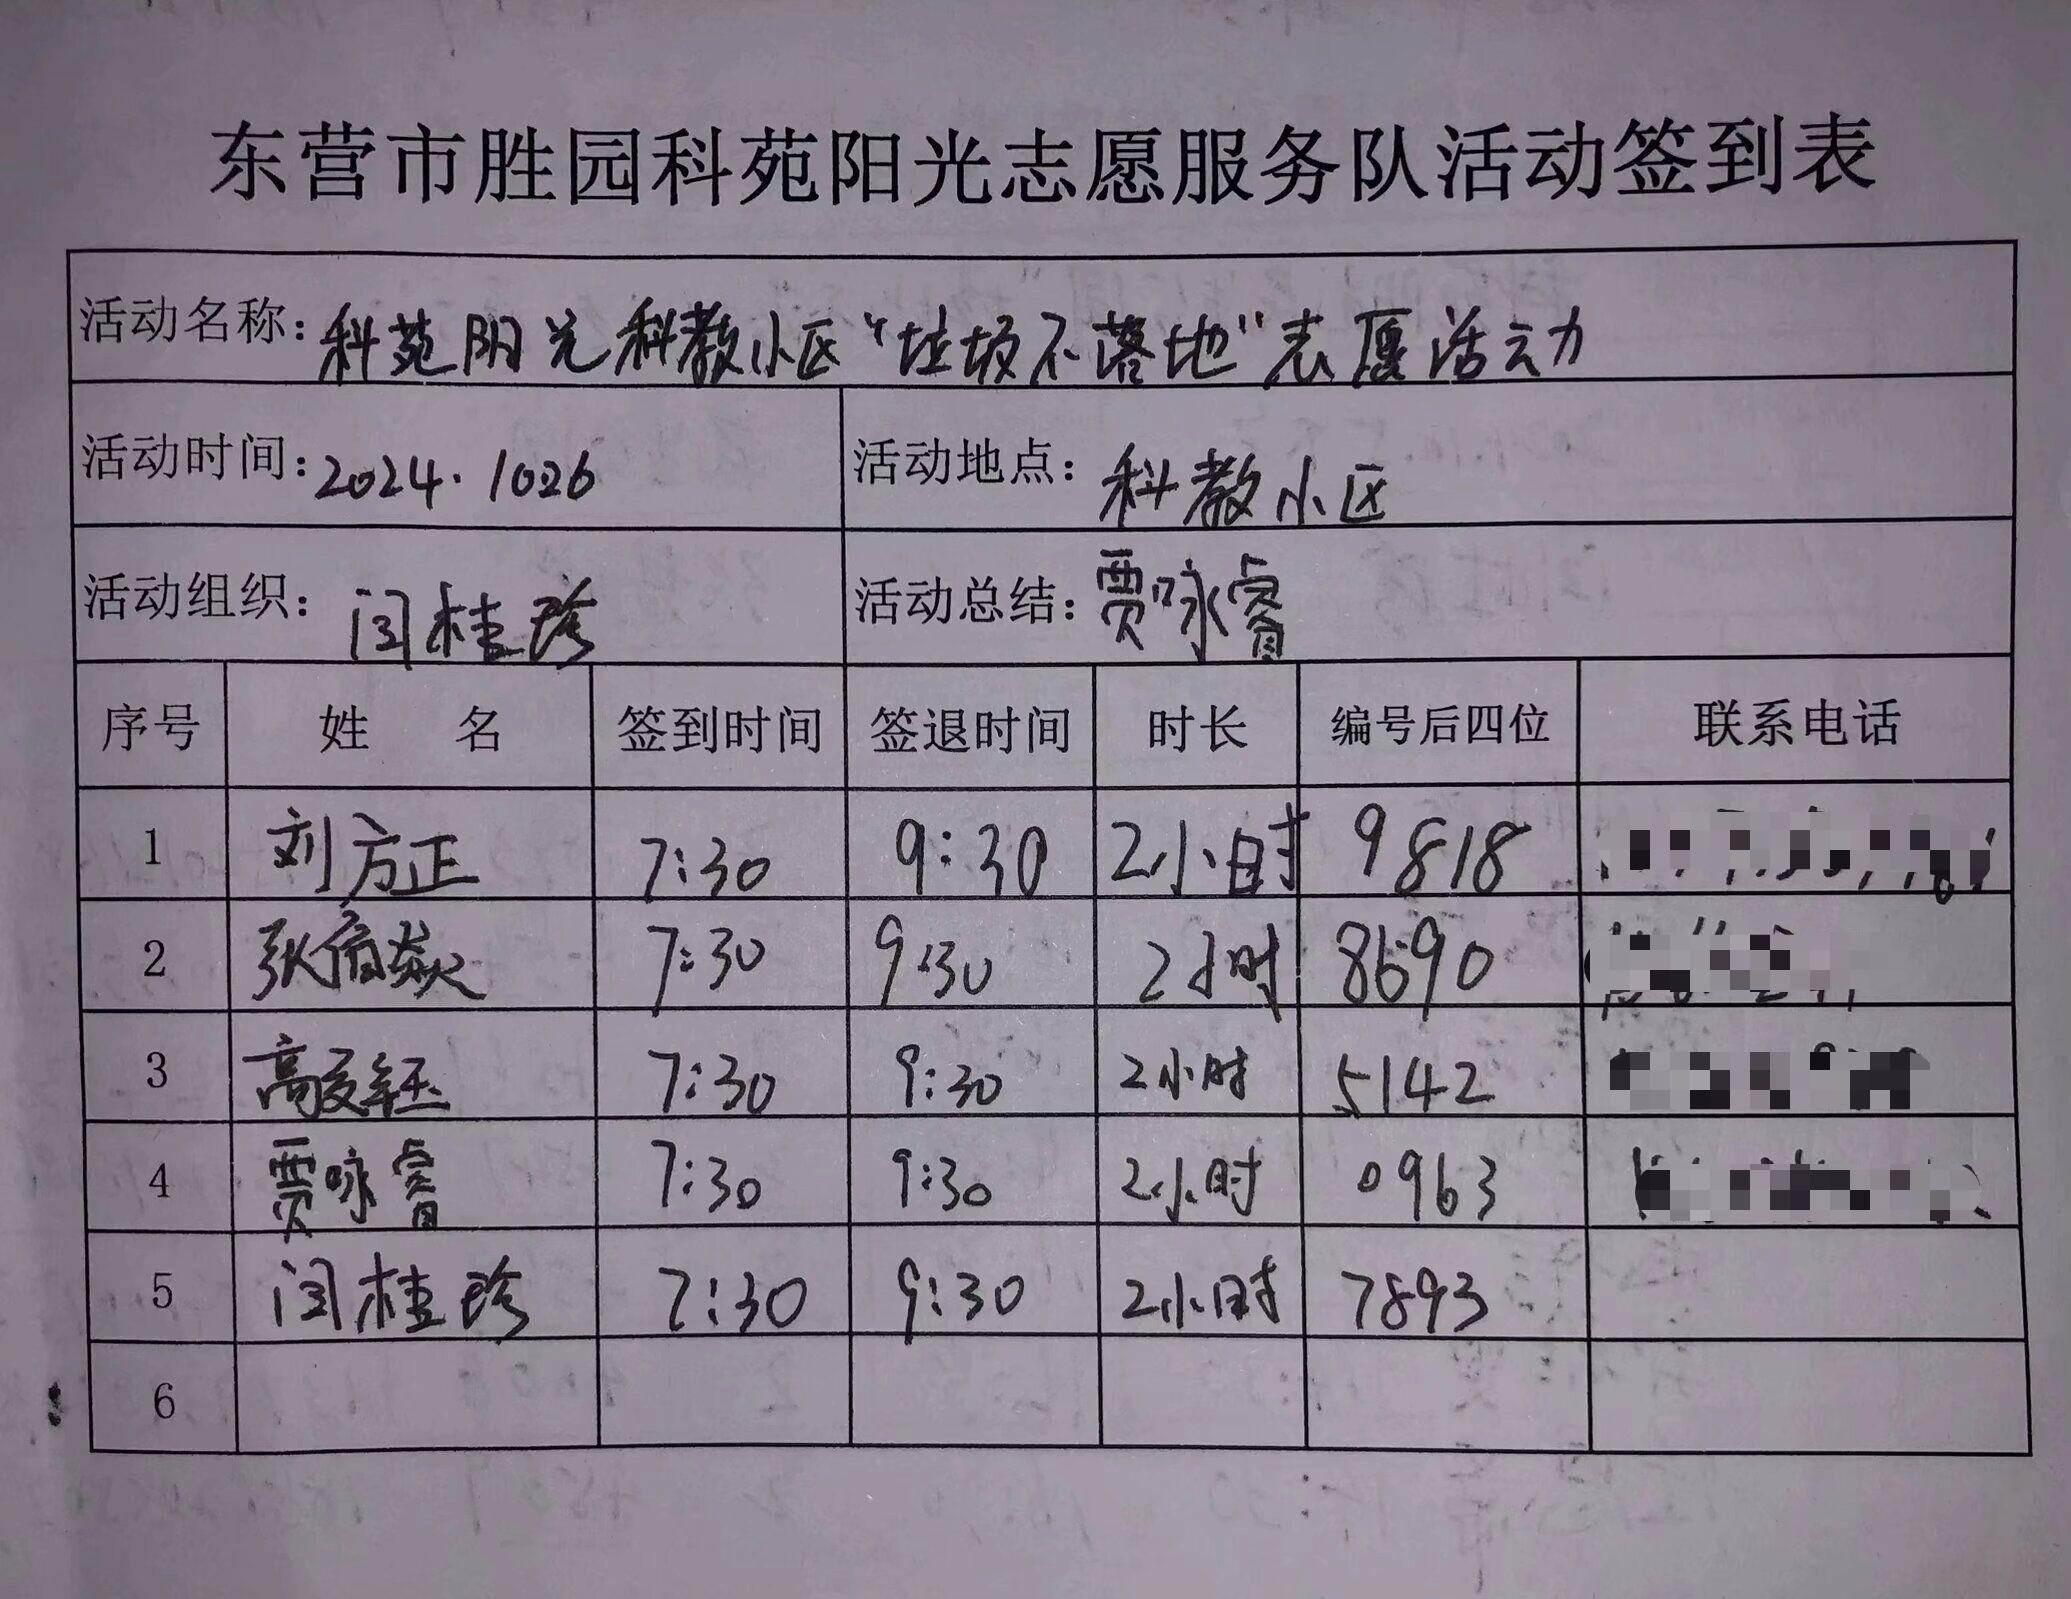 东营市胜园科苑阳光志愿服务队活动签到表
活动名称：科苑阳光科教小区“垃圾不落地”志愿活动
活动时间：2024.1026 活动地点：科教小区
活动组织：闫桂珍 活动总结：贾咏睿
序号 姓 名 签到时间 签退时间 时长 编号后四位 联系电话
1 刘方正 7:30 9:30 2小时 9818
2 张 7:30 9:30 2小时 8690
3 高 7:30 9:30 2小时 5142
4 贾咏睿 7:30 9:30 2小时 0963
5 闫桂珍 7:30 9:30 2小时 7893
6